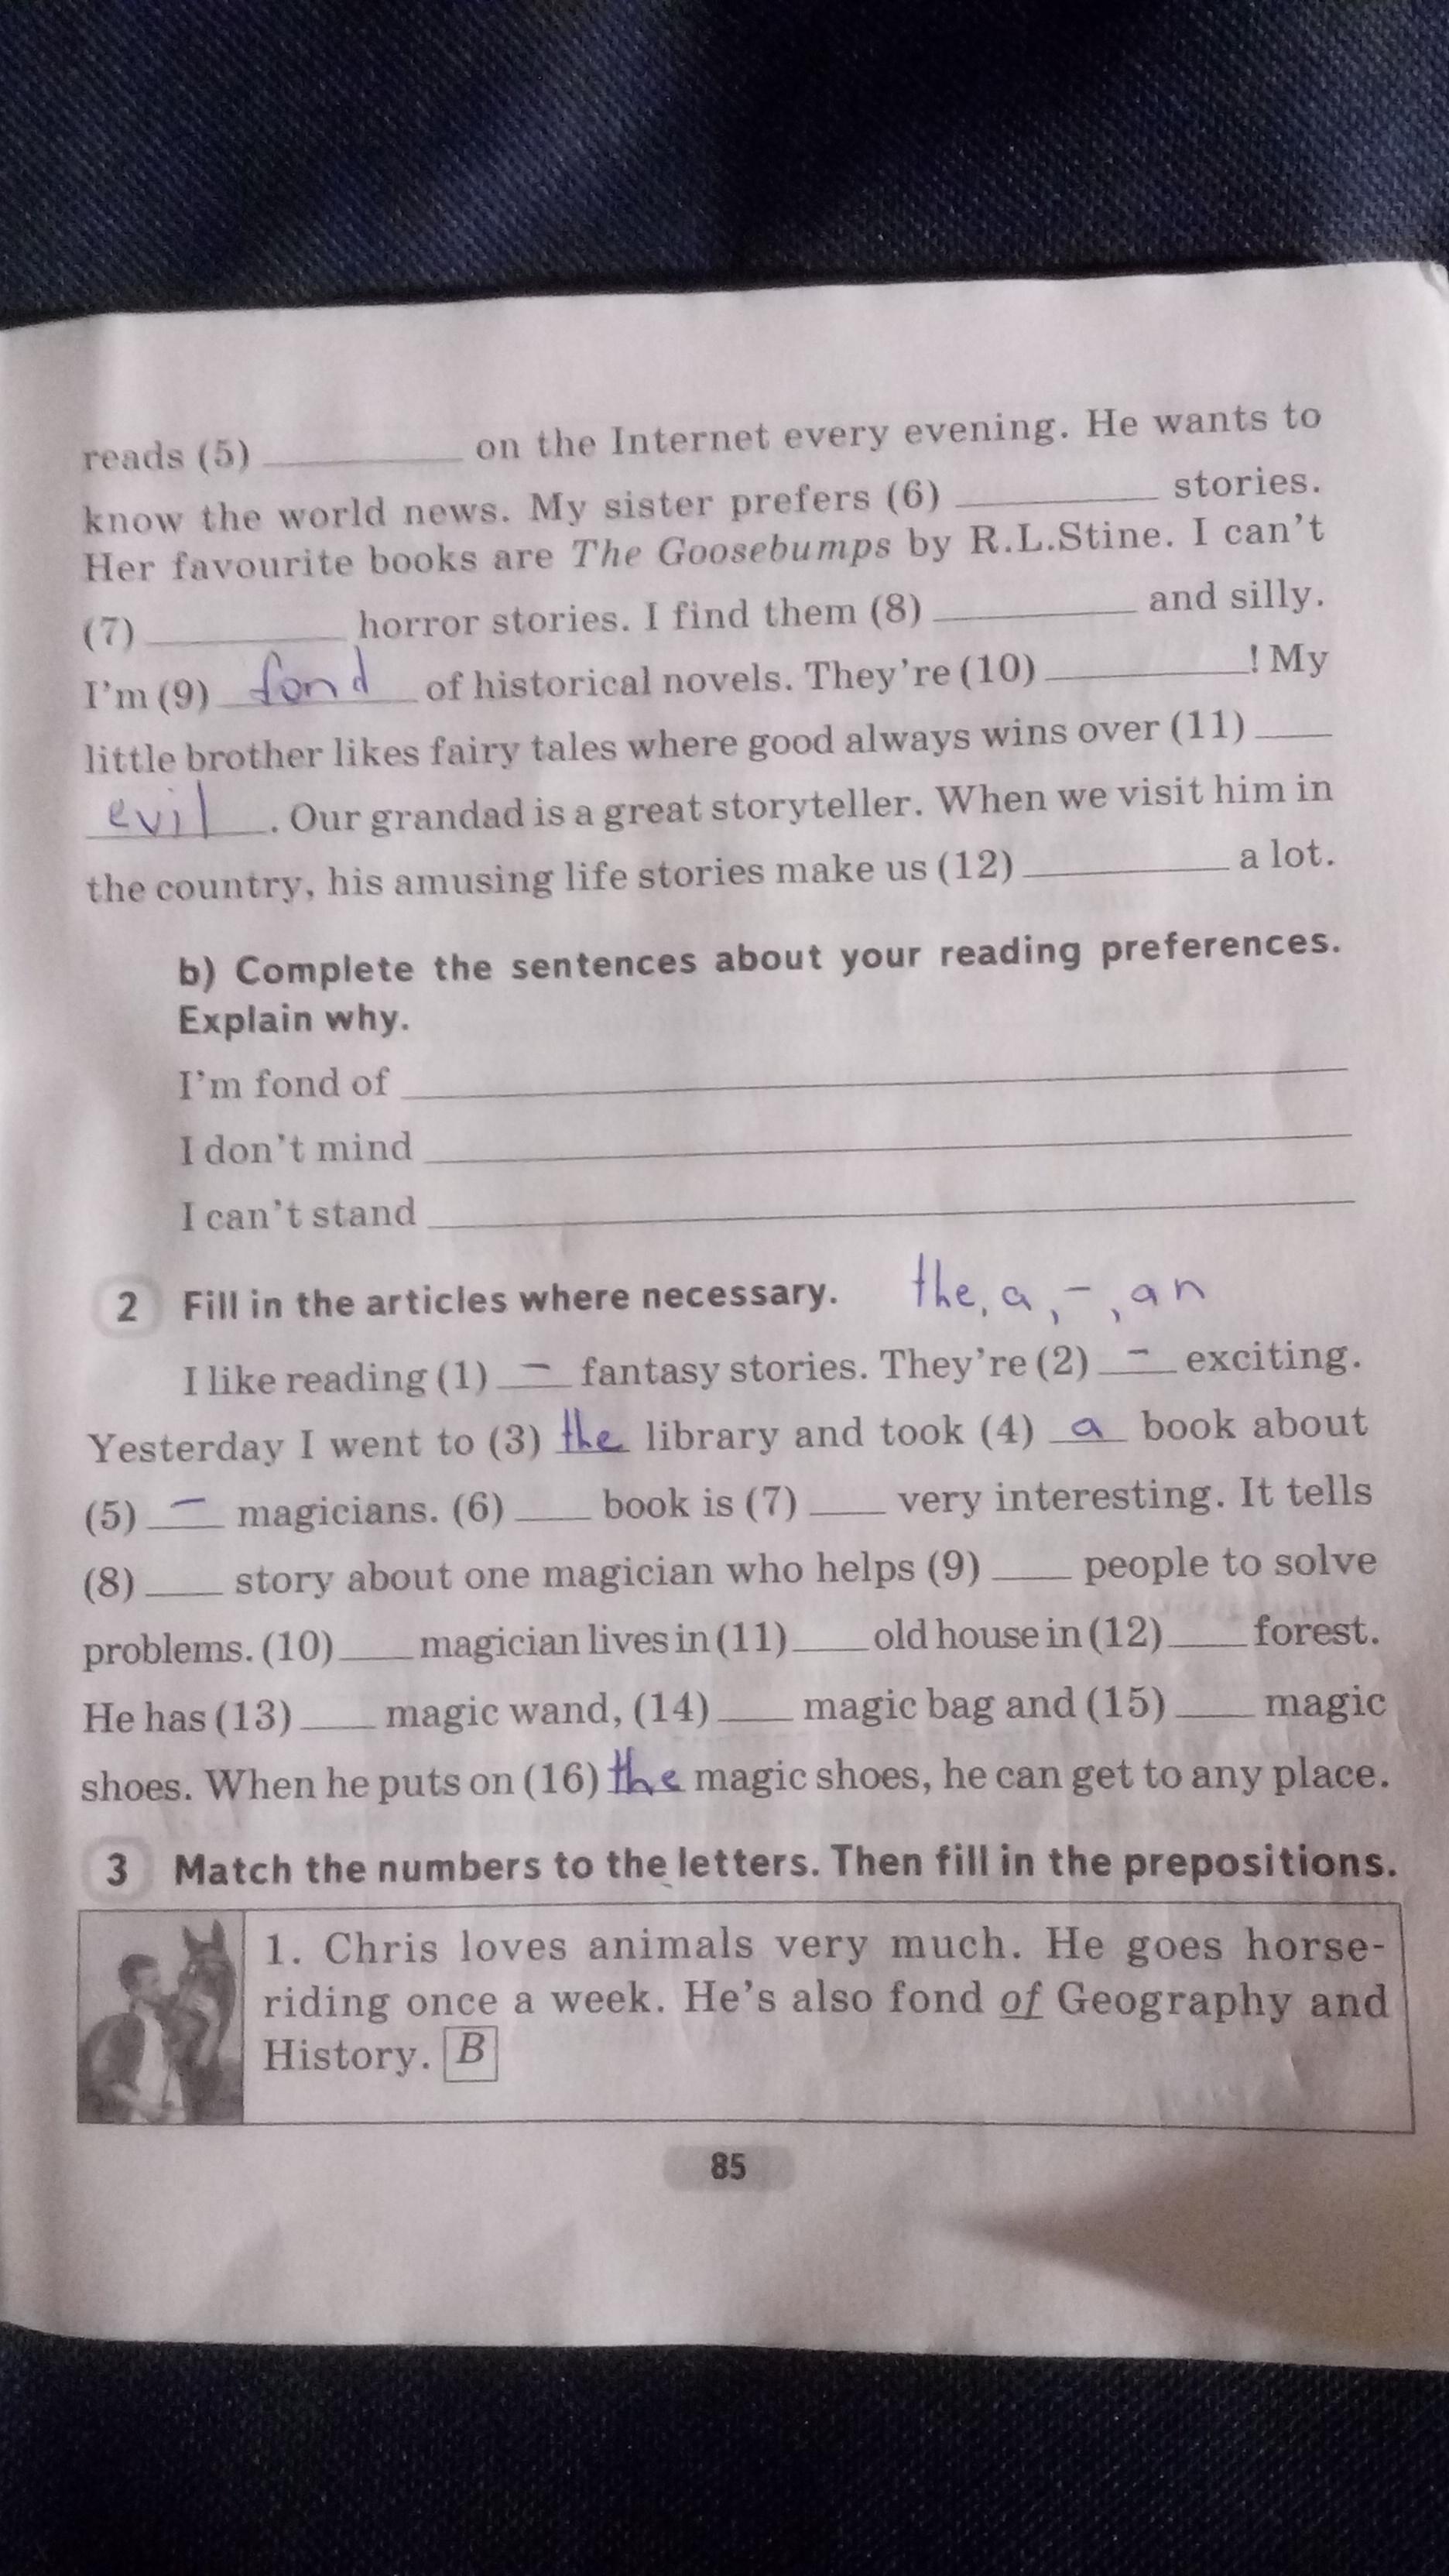 reads (5) __________ on the Internet every evening. He wants to
know the world news. My sister prefers (6) __________ stories.
Her favourite books are The Goosebumps by R.L.Stine. I can't
(7) __________ horror stories. I find them (8) __________ and silly.
I'm (9) fond of historical novels. They're (10) __________! My
little brother likes fairy tales where good always wins over (11) ____
evil. Our grandad is a great storyteller. When we visit him in
the country, his amusing life stories make us (12) __________ a lot.
b) Complete the sentences about your reading preferences.
Explain why.
I'm fond of __________
I don't mind __________
I can't stand __________
2 Fill in the articles where necessary. the, a, –, an
I like reading (1) – fantasy stories. They're (2) – exciting.
Yesterday I went to (3) the library and took (4) a book about
(5) – magicians. (6) ____ book is (7) ____ very interesting. It tells
(8) ____ story about one magician who helps (9) ____ people to solve
problems. (10) ____ magician lives in (11) ____ old house in (12) ____ forest.
He has (13) ____ magic wand, (14) ____ magic bag and (15) ____ magic
shoes. When he puts on (16) the magic shoes, he can get to any place.
3 Match the numbers to the letters. Then fill in the prepositions.
1. Chris loves animals very much. He goes horse-
riding once a week. He's also fond of Geography and
History. B
85